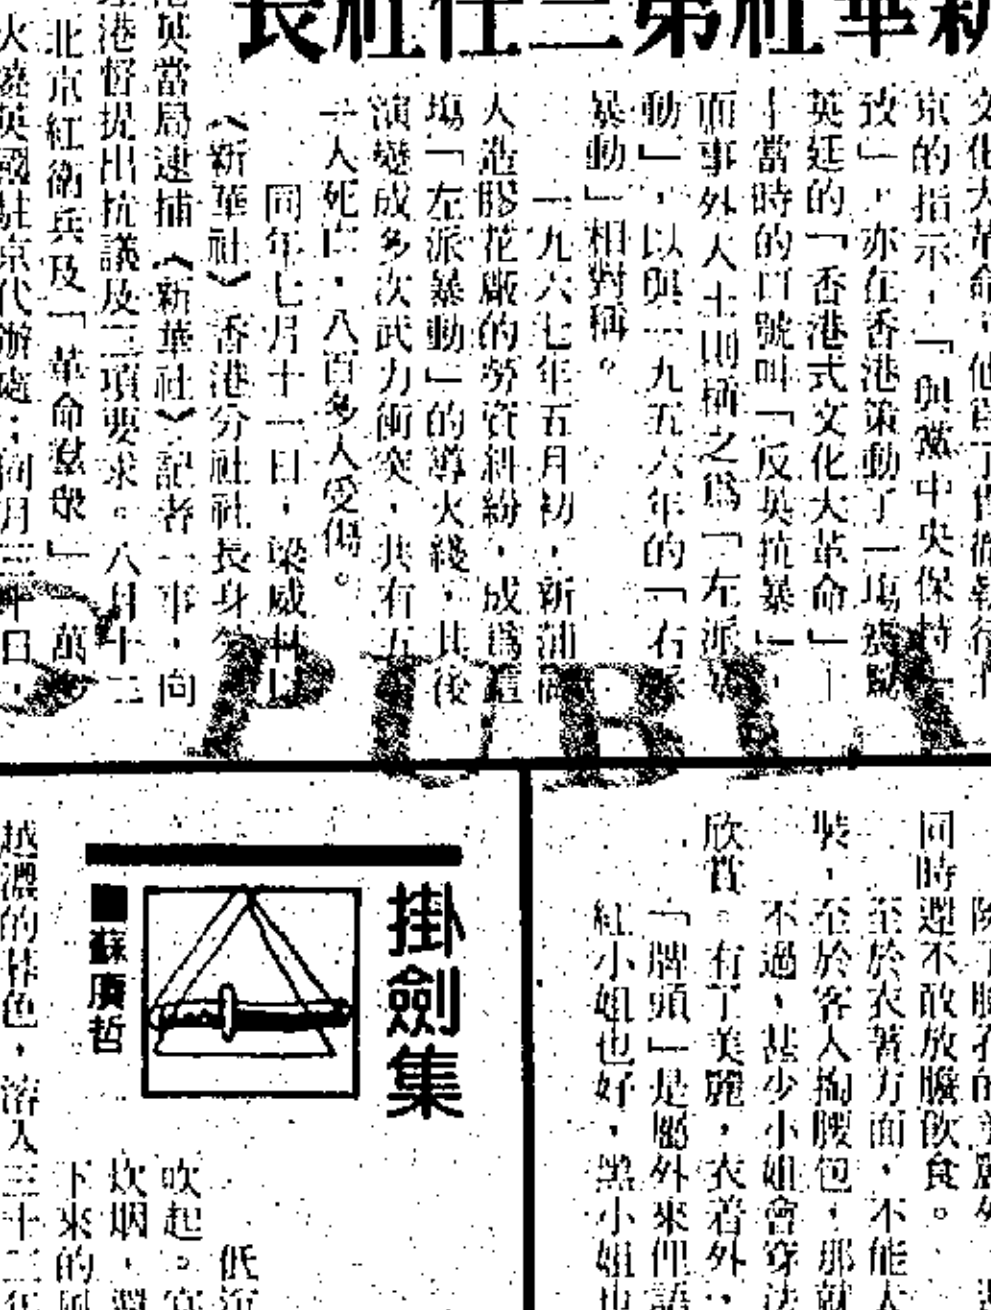 新華社第三任社長
文化大革命,他為了貫徹執行
京的指示,「與黨中央保持一
致」,亦在香港策動了一場震驚
英廷的「香港式文化大革命」—
—當時的口號叫「反英抗暴」,
而事外人士則稱之為「左派暴
動」,以與一九五六年的「右派
暴動」相對稱。
一九六七年五月初,新蒲崗
人造膠花廠的勞資糾紛,成為這
塲「左派暴動」的導火綫,其後
演變成多次武力衝突,共有五
十人死亡,八百多人受傷。
同年七月十一日,梁威林以
《新華社》香港分社社長身分
港英當局逮捕《新華社》記者一事,向
港督提出抗議及三項要求。八月十二
北京紅衛兵及「革命羣衆」萬
火燒英國駐京代辦處;同月三十日,
同時還不敢放膽飲食。
至於衣著方面,不能太
裝,至於客人掏腰包,那就
不過,甚少小姐會穿法
欣賞。有了美麗,衣着外,
「牌頭」是屬外來俚語
紅小姐也好,黑小姐也
掛劍集
■蘇賡哲
低沉
吹起。
炊烟,
下來的風
越濃的暮色,溶入三十二年